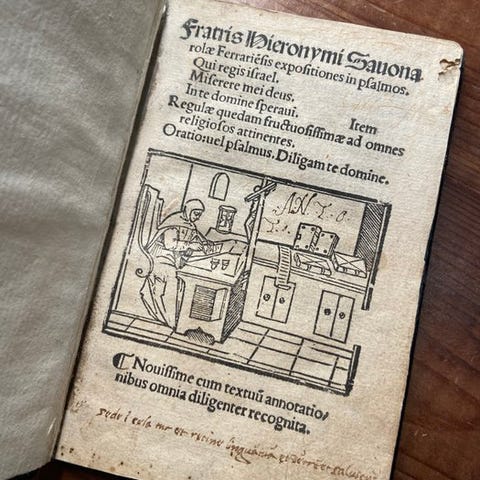 Fratris Hieronymi Sauona
rolæ Ferrariēsis expositiones in psalmos.
Qui regis israel.
Miserere mei deus.
In te domine speraui. Item
Regulæ quedam fructuosissimæ ad omnes
religiosos attinentes.
Oratio: uel psalmus. Diligam te domine.
A N T O
Nouissime cum textuū annotatio/
nibus omnia diligenter recognita.
et